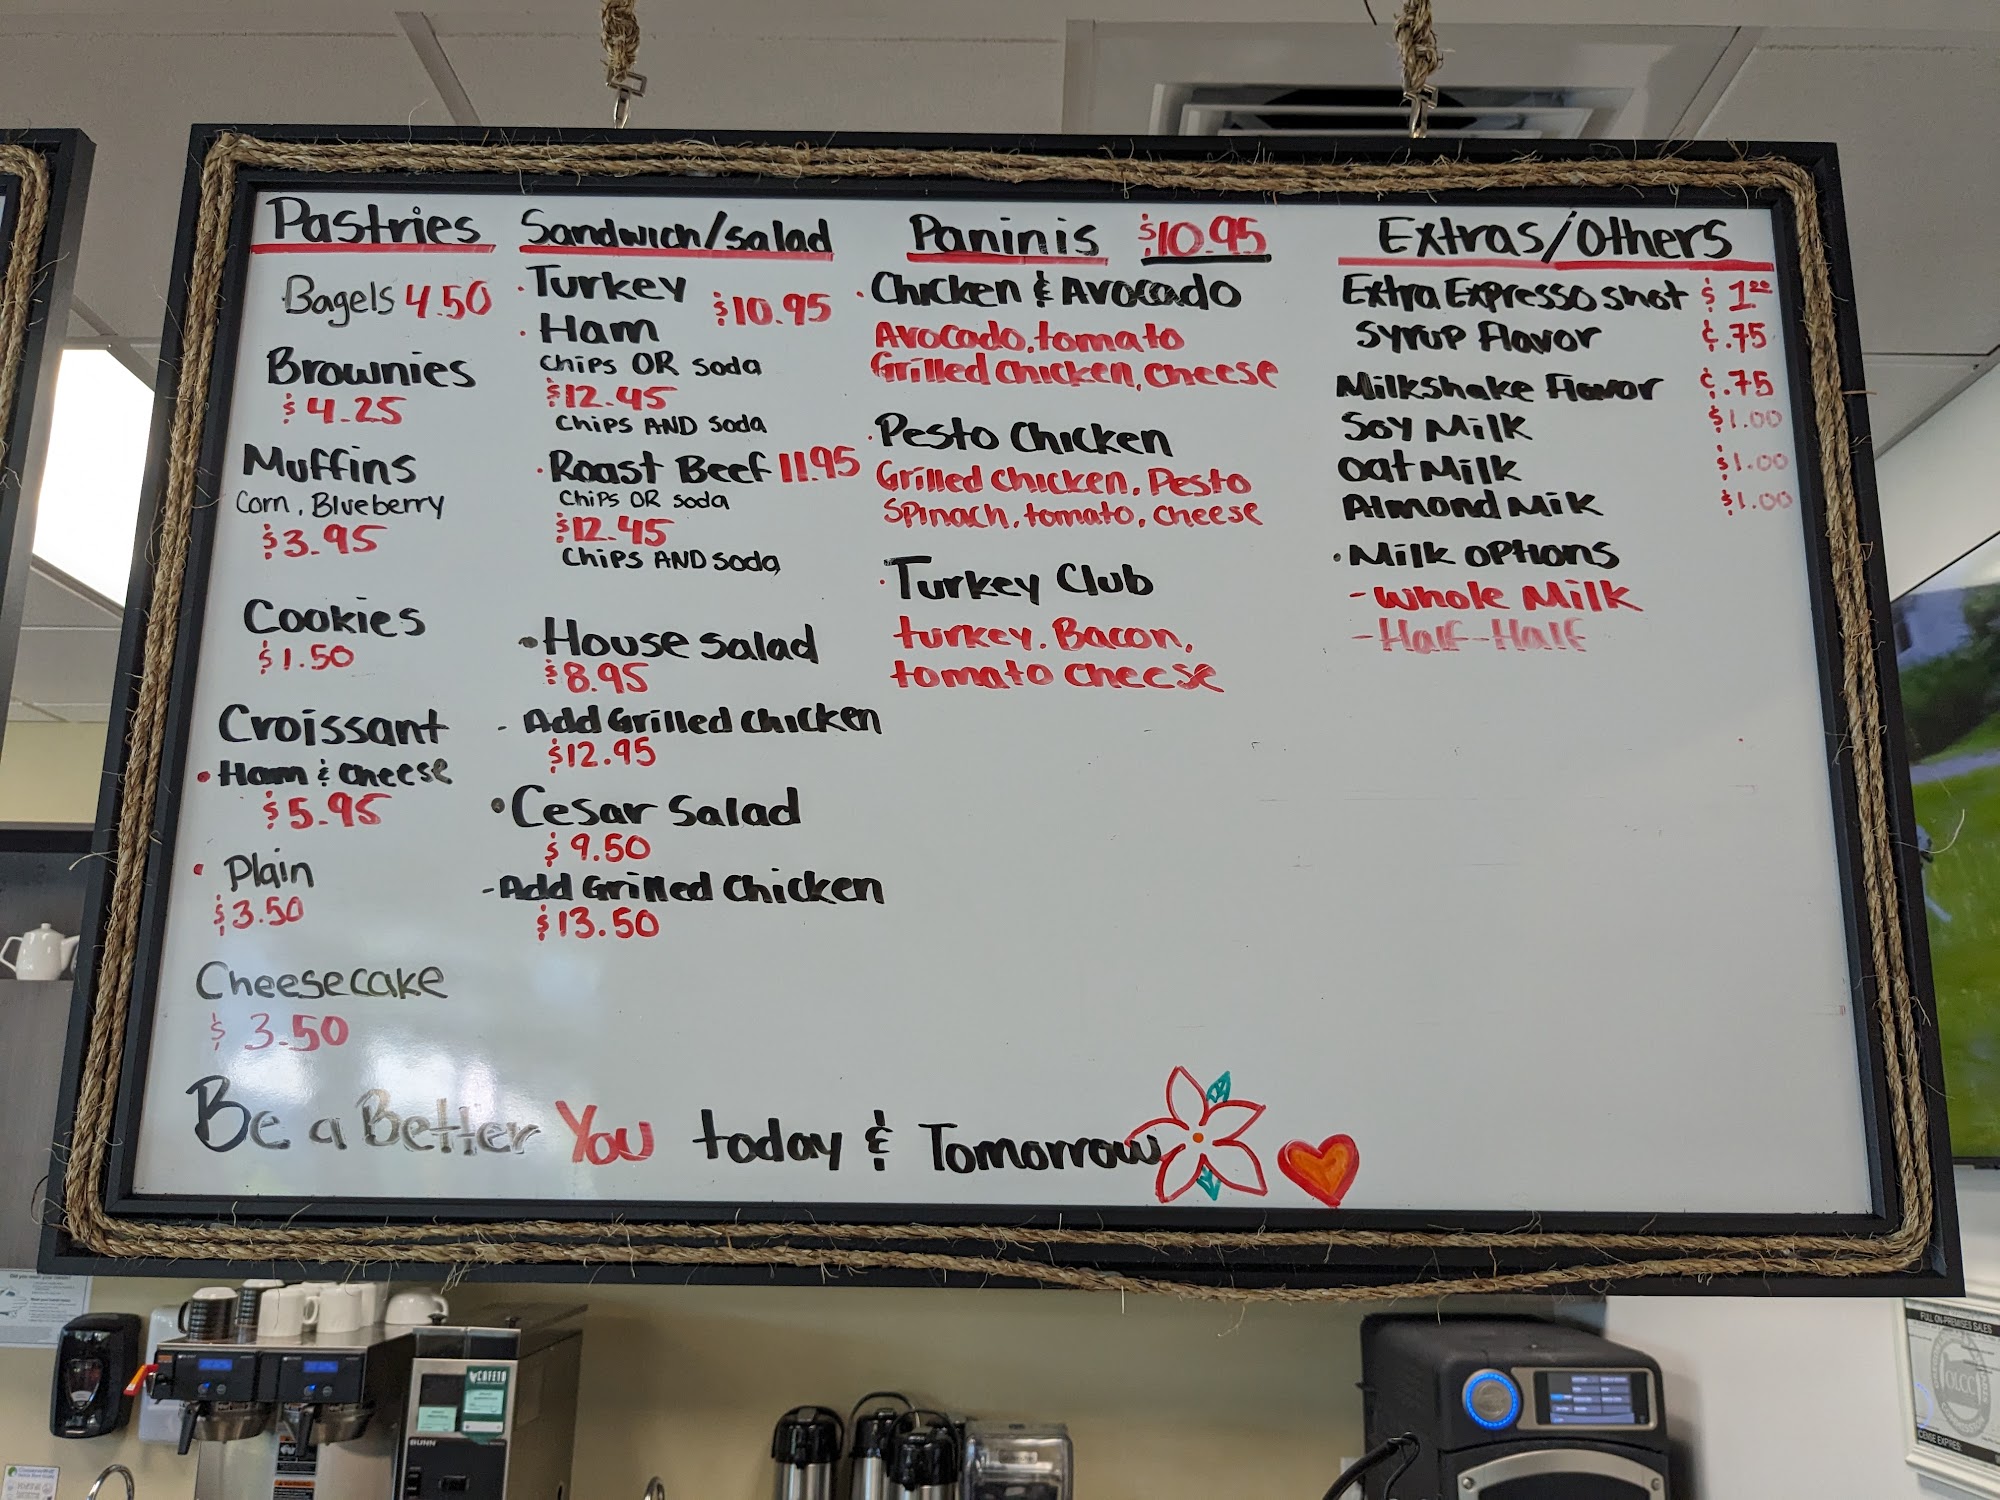 Pastries
Bagels 4.50
Brownies
$4.25
Muffins
Corn, Blueberry
$3.95
Cookies
$1.50
Croissant
• Ham & cheese
$5.95
• Plain
$3.50
Cheesecake
$3.50
Sandwich/salad
• Turkey $10.95
• Ham
Chips OR Soda
$12.45
Chips AND Soda
• Roast Beef 11.95
Chips OR Soda
$12.45
Chips AND Soda
• House salad
$8.95
- Add Grilled chicken
$12.95
• Cesar Salad
$9.50
- Add Grilled Chicken
$13.50
Paninis $10.95
• Chicken & Avocado
Avocado, tomato
Grilled chicken, cheese
• Pesto Chicken
Grilled chicken, Pesto
Spinach, tomato, cheese
• Turkey Club
turkey. Bacon,
tomato cheese
Extras/Others
Extra Expresso shot $1.00
Syrup Flavor ¢.75
Milkshake Flavor ¢.75
Soy Milk $1.00
Oat Milk $1.00
Almond Milk $1.00
• Milk options
- Whole Milk
- Half-Half
Be a Better You today & Tomorrow
BUNN
FULL ON-PREMISES SALES
OLCC